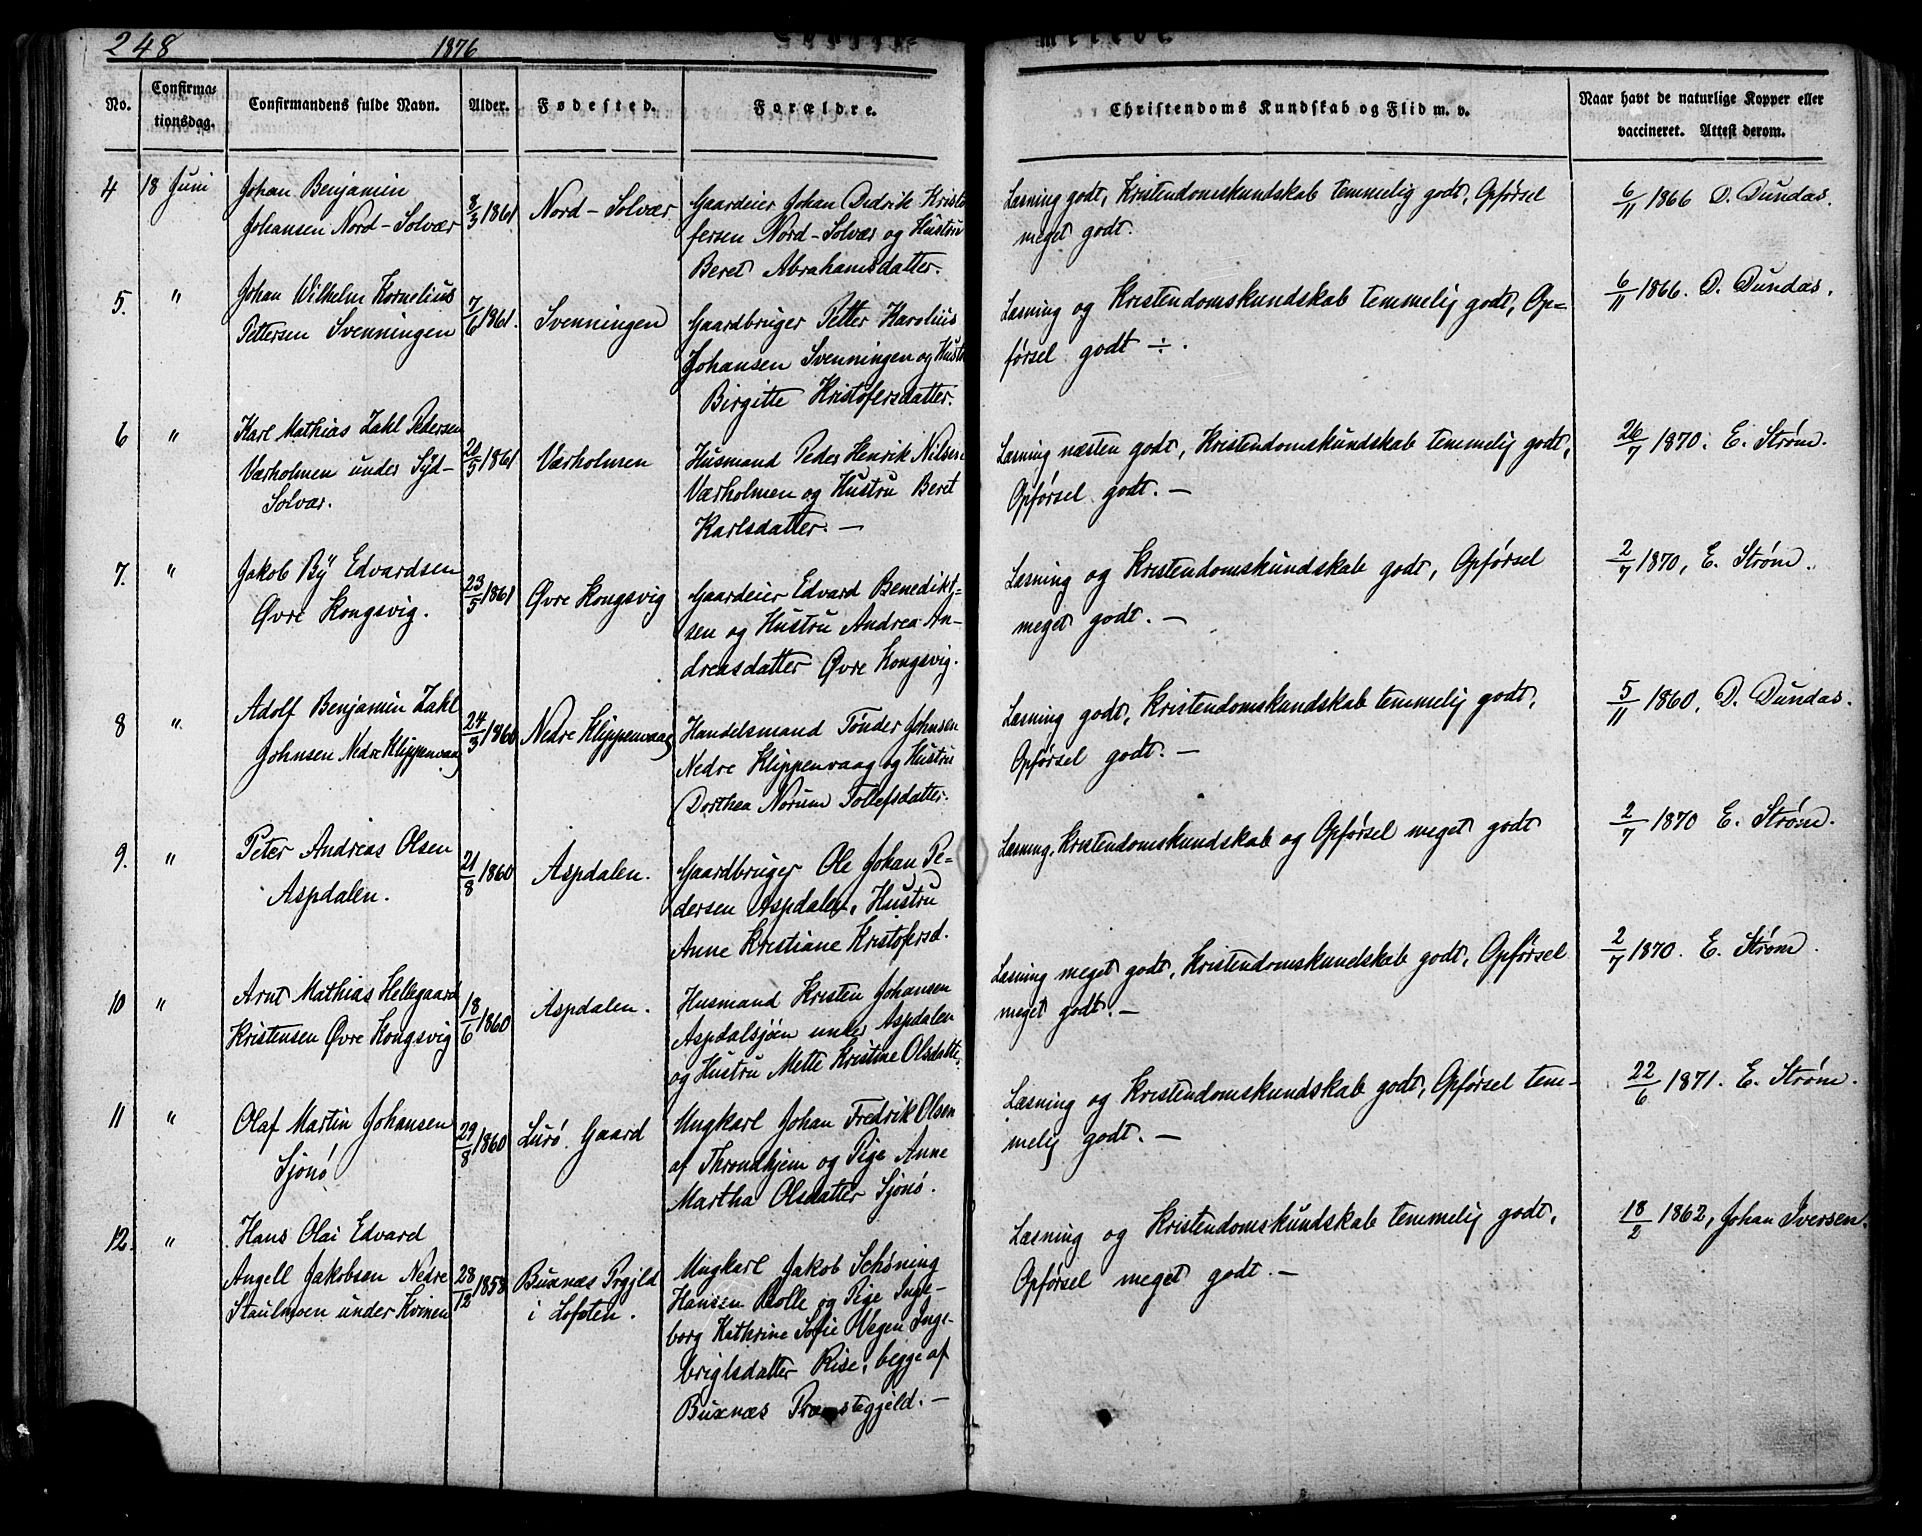 248
1876
No.
Confirma-
tionsdag.
Confirmandens fulde Navn.
Alder.
Fødested.
Forældre.
Christendoms Kundskab og Flid m. v.
Naar havt de naturlige Kopper eller
vaccineret. Attest derom.
4
18 Juni
Johan Benjamin
Johansen Nord-Solvær
8/3 1861
Nord-Solvær
Gaardeier Johan Didrik Kristo
fersen Nord-Solvær og Hustru
Beret Abrahamsdatter.
Læsning godt, Kristendomskundskab temmelig godt, Opførsel
meget godt.
6/11 1866 D. Dundas.
5.
"
Johan Wilhelm Kornelius
Pettersen Svenningen
7/6 1861.
Svenningen
Gaardbruger Petter Karolius
Johansen Svenningen og Hustr
Birgitte Kristofersdatter.
Læsning og Kristendomskundskab temmelig godt, Op=
førsel godt ÷.
6/11 1866. D. Dundas.
6
"
Karl Mathias Zahl Pedersen
Værholmen under Syd-
Solvær.
20/5 1861
Værholmen
Husmand Peder Henrik Nilsen
Værholmen og Hustru Beret
Karlsdatter. —
Læsning næsten godt, Kristendomskundskab temmelig godt,
Opførsel godt. —
26/7 1870. E. Strøm.
7.
"
Jakob By Edvardsen
Øvre Kongsvig.
23/5 1861
Øvre Kongsvig
Gaardeier Edvard Benedikt=
sen og Hustru Andrea An-
dreasdatter Øvre Kongsvig.
Læsning og Kristendomskundskab godt, Opførsel
meget godt. —
2/7 1870, E. Strøm.
8
"
Adolf Benjamin Zahl
Johnsen Nedre Klippenvaag
24/3 1860
Nedre Klippenvaag
Handelsmand Tønder Johnsen
Nedre Klippenvaag og Hustru
Dorthea Norum Tollefsdatter.
Læsning godt, Kristendomskundskab temmelig godt,
Opførsel godt. —
5/11 1860, D. Dundas.
9.
"
Peter Andreas Olsen
Aspdalen.
21/8 1860
Aspdalen.
Gaardbruger Ole Johan Pe-
dersen Aspdalen, Hustru
Anne Kristiane Kristofersd.
Læsning, Kristendomskundskab og Opførsel meget godt
2/7 1870 E. Strøm.
10
"
Arnt Mathias Hellegaard
Kristensen Øvre Kongsvig
18/6 1860
Aspdalen.
Husmand Kristen Johansen
Aspdalsjøen under Aspdalen
og Hustru Mette Kristine Olsdatte
Læsning meget godt, Kristendomskundskab godt, Opførsel
meget godt. —
2/7 1870. E. Strøm.
11
"
Olaf Martin Johansen
Sjonø
29/8 1860
Lurø Gaard
Ungkarl Johan Fredrik Olsen
af Throndhjem og Pige Anne
Martha Olsdatter Sjonø.
Læsning og Kristendomskundskab godt, Opførsel tem-
melig godt. —
22/6 1871. E. Strøm.
12.
"
Hans Olai Edvard
Angell Jakobsen Nedre
Staulmoen under Kvinen
28/12 1858
Buxnæs Prgjld
i Lofoten.
Ungkarl Jakob Schøning
Hansen Bolle og Pige Inge-
borg Kathrine Sofie Wegen Inge-
brigtsdatter Rise, begge af
Buxnæs Præstegjeld. —
Læsning og Kristendomskundskab temmelig godt,
Opførsel meget godt. —
18/2 1862, Johan Iversen.